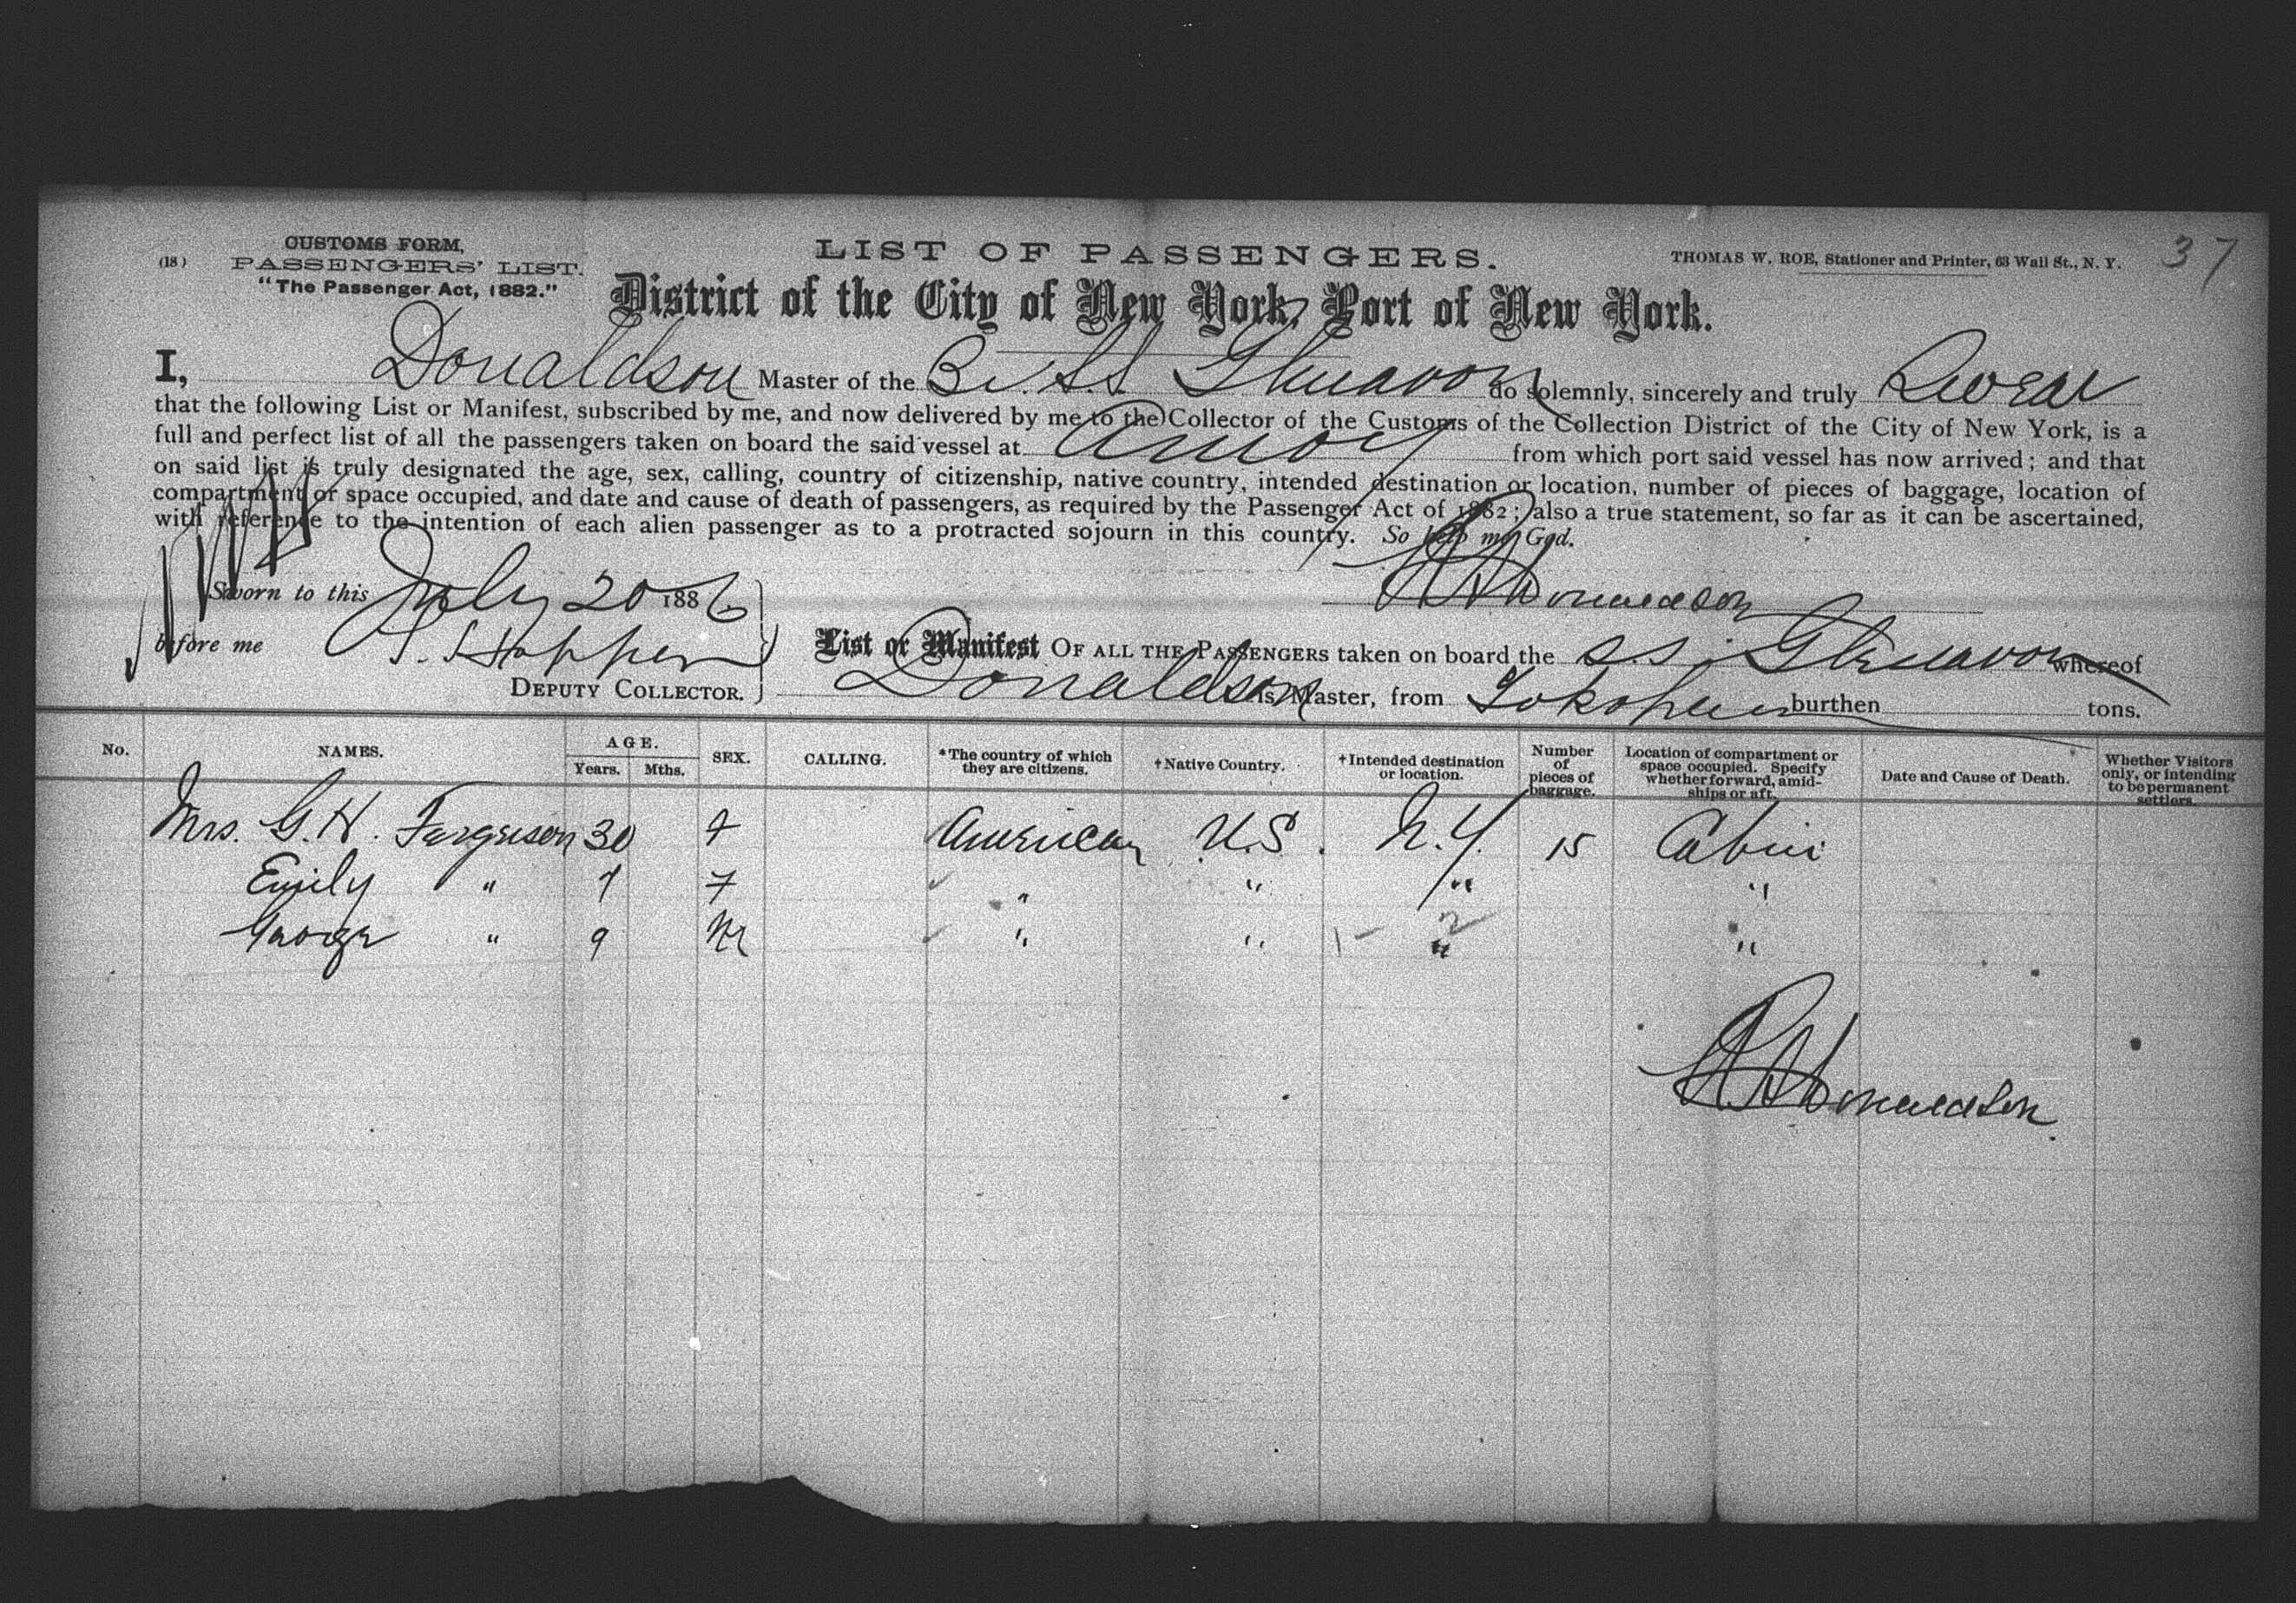 CUSTOMS FORM,
(18) PASSENGERS' LIST.
"The Passenger Act, 1882."
LIST OF PASSENGERS.
THOMAS W. ROE, Stationer and Printer, 63 Wall St., N. Y.
37
District of the City of New York, Port of New York.
I, Donaldson Master of the Br. SS Glenavon do solemnly, sincerely and truly Swear
that the following List or Manifest, subscribed by me, and now delivered by me to the Collector of the Customs of the Collection District of the City of New York, is a
full and perfect list of all the passengers taken on board the said vessel at Amoy from which port said vessel has now arrived; and that
on said list is truly designated the age, sex, calling, country of citizenship, native country, intended destination or location, number of pieces of baggage, location of
compartment or space occupied, and date and cause of death of passengers, as required by the Passenger Act of 1882; also a true statement, so far as it can be ascertained,
with reference to the intention of each alien passenger as to a protracted sojourn in this country. So help me God.
Sworn to this July 20 1886
Donaldson
before me Hopper
DEPUTY COLLECTOR.
List or Manifest OF ALL THE PASSENGERS taken on board the S.S. Glenavon whereof
Donaldson is Master, from Yokohama burthen tons.
No. NAMES. AGE. Years. Mths. SEX. CALLING. *The country of which they are citizens. †Native Country. †Intended destination or location. Number of pieces of baggage. Location of compartment or space occupied. Specify whether forward, amidships or aft. Date and Cause of Death. Whether Visitors only, or intending to be permanent settlers.
Mrs. G. H. Ferguson 30 F American U.S. N.Y. 15 Cabin
Emily " 7 F " " " "
George " 9 M " " " "
Donaldson